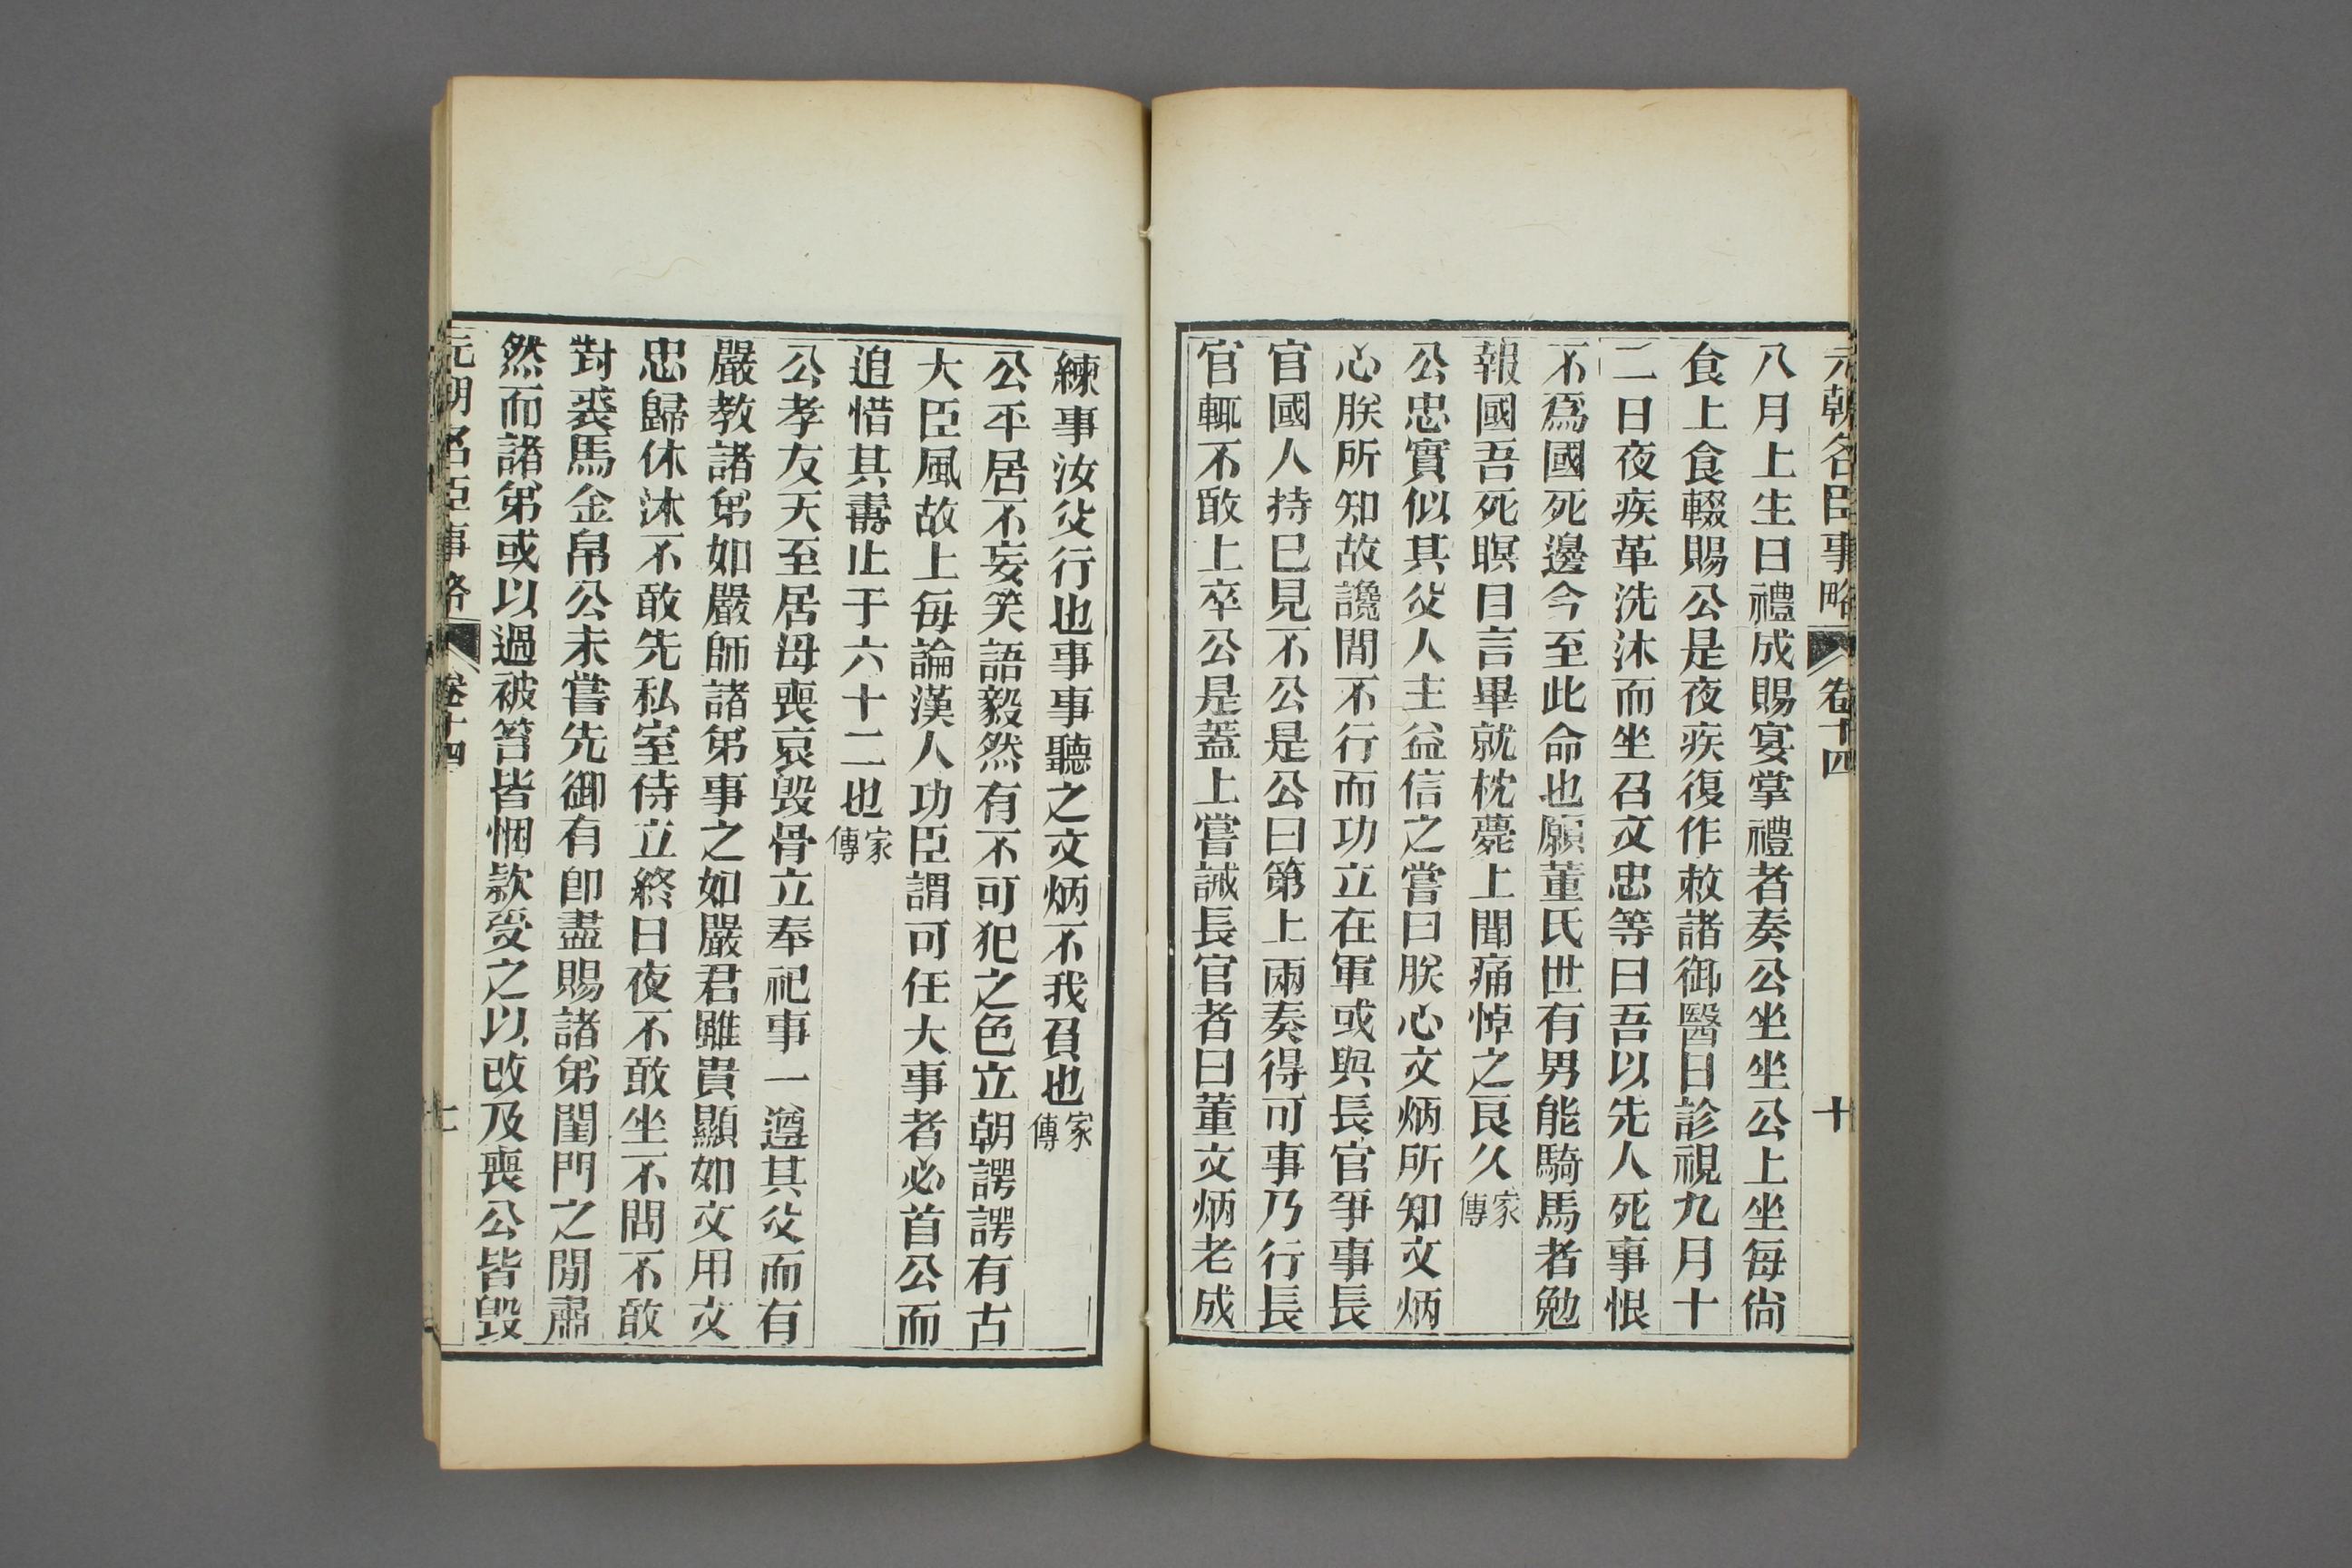 元朝名臣事略 卷十四 十
八月上生日禮成賜宴掌禮者奏公坐坐公上坐每尙
食上食輟賜公是夜疾復作敕諸御醫日診視九月十
二日夜疾革洗沐而坐召文忠等曰吾以先人死事恨
不爲國死邊今至此命也願董氏世有男能騎馬者勉
報國吾死瞑目言畢就枕薨上聞痛悼之艮久家傳
公忠實似其父人主益信之嘗曰朕心文炳所知文炳
心朕所知故讒閒不行而功立在軍或與長官爭事長
官國人持已見不公是公曰第上兩奏得可事乃行長
官輒不敢上卒公是蓋上嘗誡長官者曰董文炳老成
練事汝父行也事事聽之文炳不我負也家傳
公平居不妄笑語毅然有不可犯之色立朝諤諤有古
大臣風故上每論漢人功臣謂可任大事者必首公而
追惜其壽止于六十二也家傳
公孝友天至居母喪哀毀骨立奉祀事一遵其父而有
嚴教諸弟如嚴師諸弟事之如嚴君雖貴顯如文用文
忠歸休沐不敢先私室侍立終日夜不敢坐不問不敢
對裘馬金帛公未嘗先御有卽盡賜諸弟閨門之閒肅
然而諸弟或以過被笞皆悃款受之以改及喪公皆毀
元朝名臣事略 卷十四